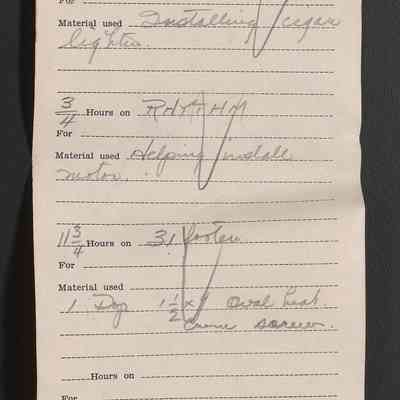 For
Material used Installing cigar
lighter.
3/4 Hours on RHYTHM
For
Material used Helping install
motor.
11 3/4 Hours on 31 footer
For
Material used
1 Doz 1 1/2 x Oval head
screws.
Hours on
For